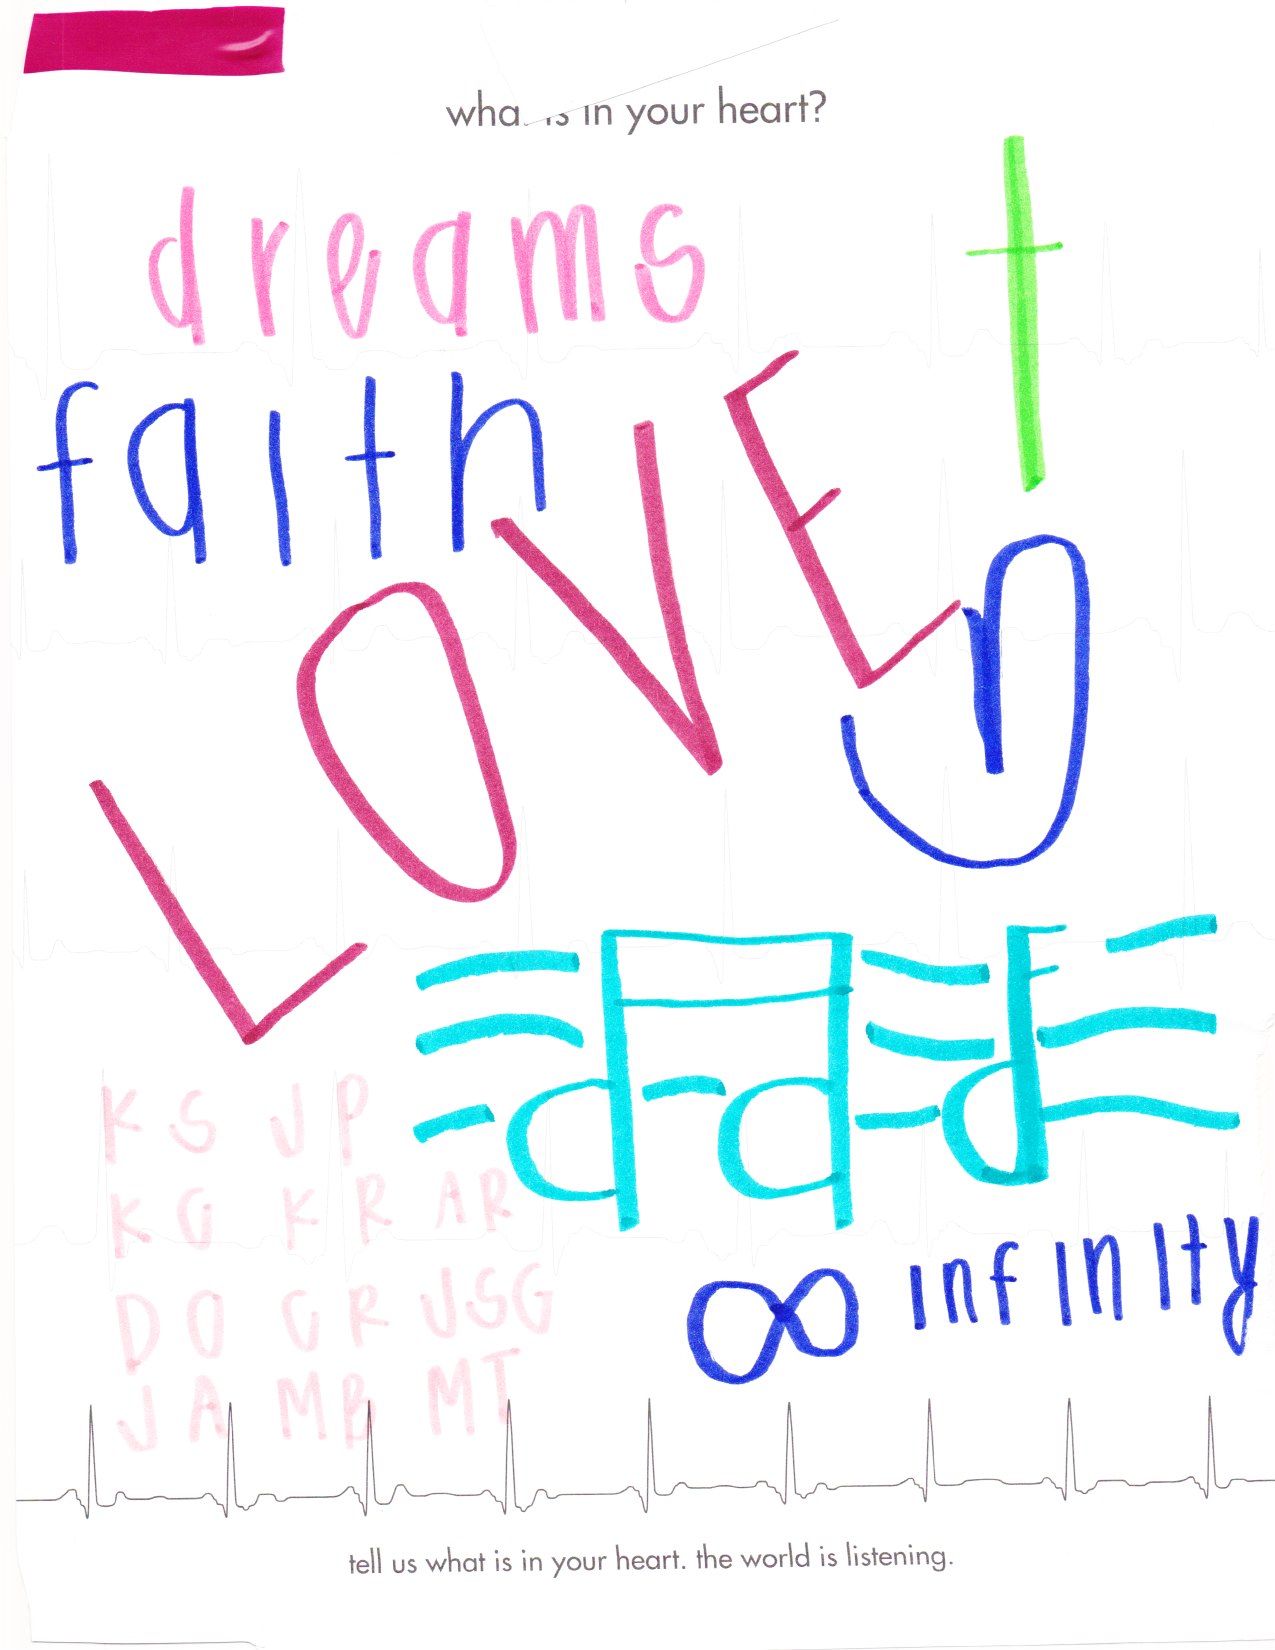 what is in your heart?
dreams
faith
LOVE
KS JP
KG KR AR
DO GR JSG
JA MB MT
∞ infinity
tell us what is in your heart. the world is listening.